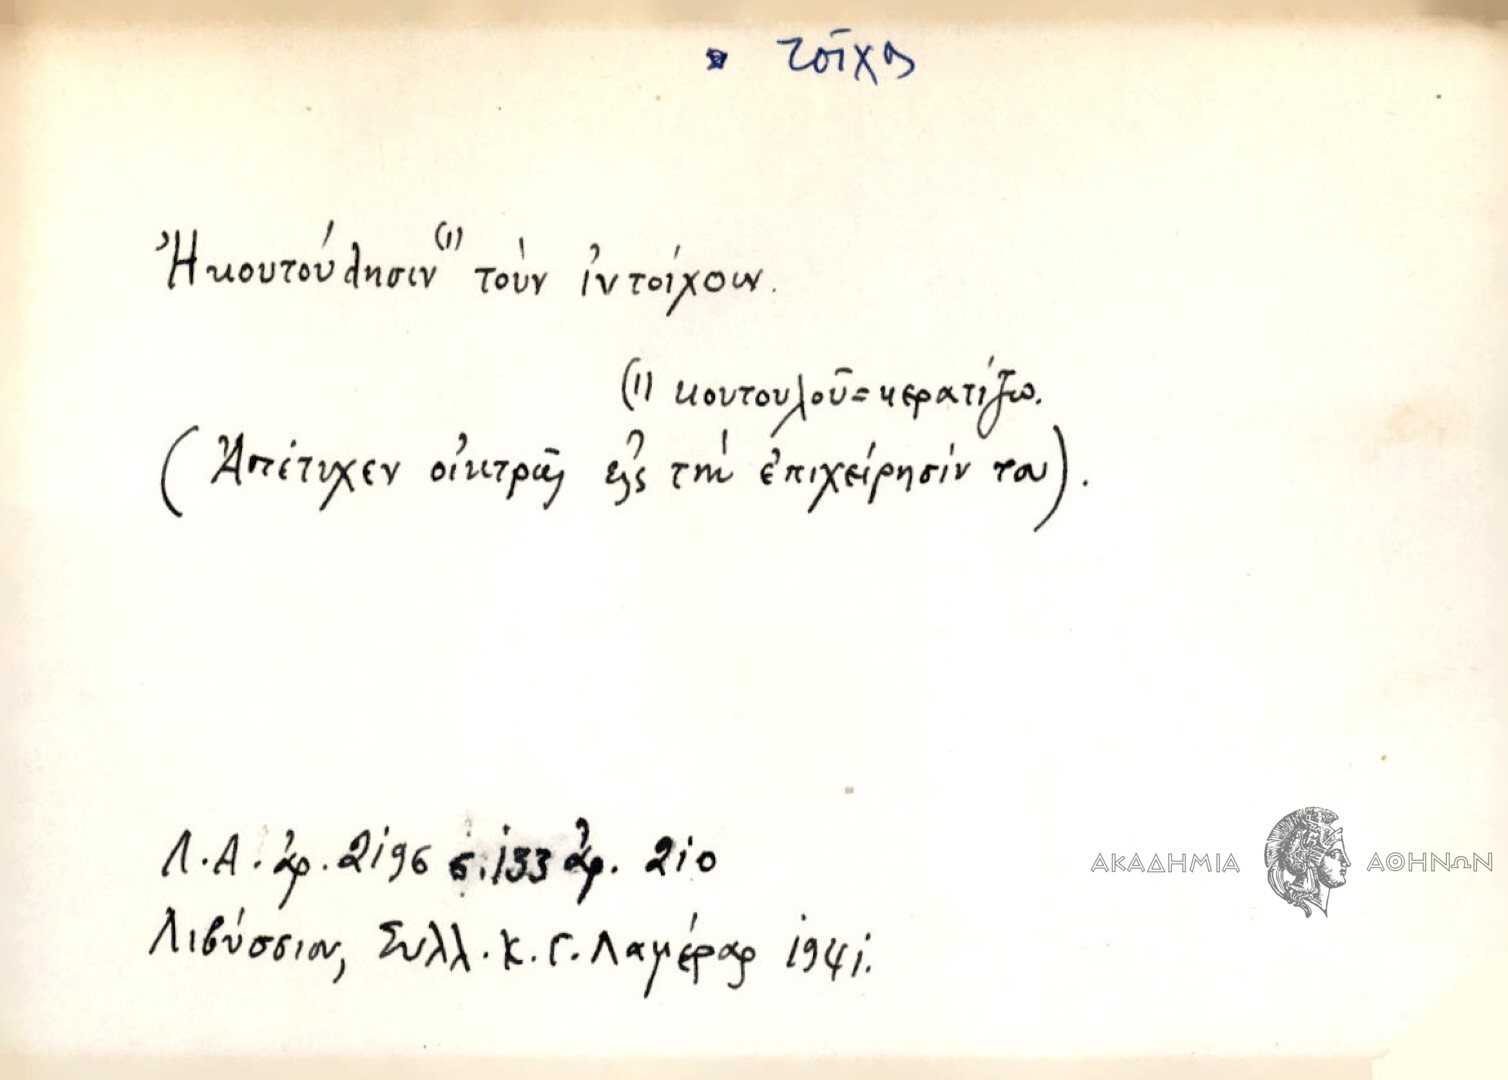 τοῖχος
Ἠκουτούλησιν (1) τοὺν ἰντοίχουν.
(1) κουτουλοῦ = κερατίζω.
(Ἀπέτυχεν οἰκτρῶς εἰς τὴν ἐπιχείρησίν του).
Λ.Α. ἀρ. 2196 σ. 133 ἀρ. 210
Λιβύσσιον, Συλλ. Κ. Γ. Λαμέρας 1941.
ΑΚΑΔΗΜΙΑ ΑΘΗΝΩΝ